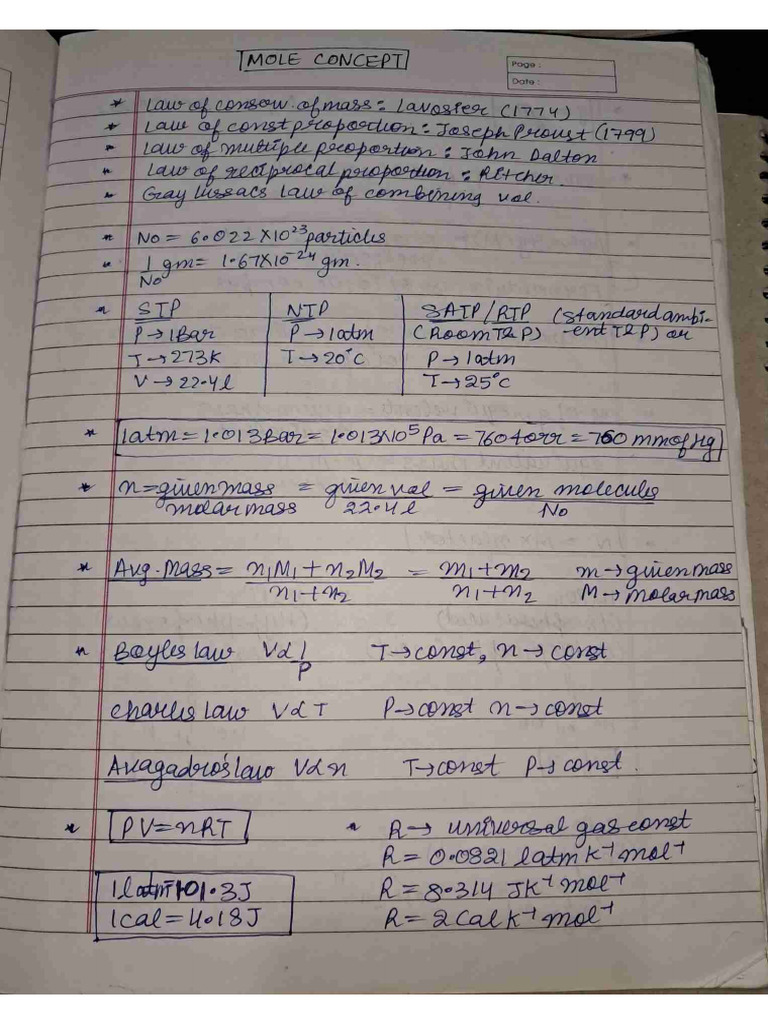 MOLE CONCEPT
Page :
Date :
* Law of conserv. of mass: Lavosier (1774)
* Law of const proportion: Joseph Proust (1799)
* Law of multiple proportion: John Dalton
* Law of reciprocal proportion: Ritcher.
* Gay Lussacs law of combining vol.
* No = 6.022 X 10²³ particles
* 1/No gm = 1.67X10⁻²⁴ gm.
* STP NTP SATP/RTP (Standard ambi-
P → 1Bar P → 1atm (Room T&P) -ent T&P) or
T → 273K T → 20°C P → 1atm
V → 22.4l T → 25°C
* 1atm = 1.013Bar = 1.013X10⁵ Pa = 760torr = 760 mm of Hg
* n = given mass/molar mass = given vol/22.4l = given molecules/No
* Avg. Mass = n₁M₁ + n₂M₂/n₁+n₂ = m₁+m₂/n₁+n₂ m → given mass
M → molar mass
* Boyles law V∝1/P T → const, n → const
Charles law V∝T P → const n → const
Avagadro's law V∝n T → const P → const.
* PV = nRT * R → universal gas const
R = 0.0821 latm K⁻¹ mol⁻¹
1latm = 101.3J R = 8.314 JK⁻¹ mol⁻¹
1cal = 4.18J R = 2 Cal K⁻¹ mol⁻¹